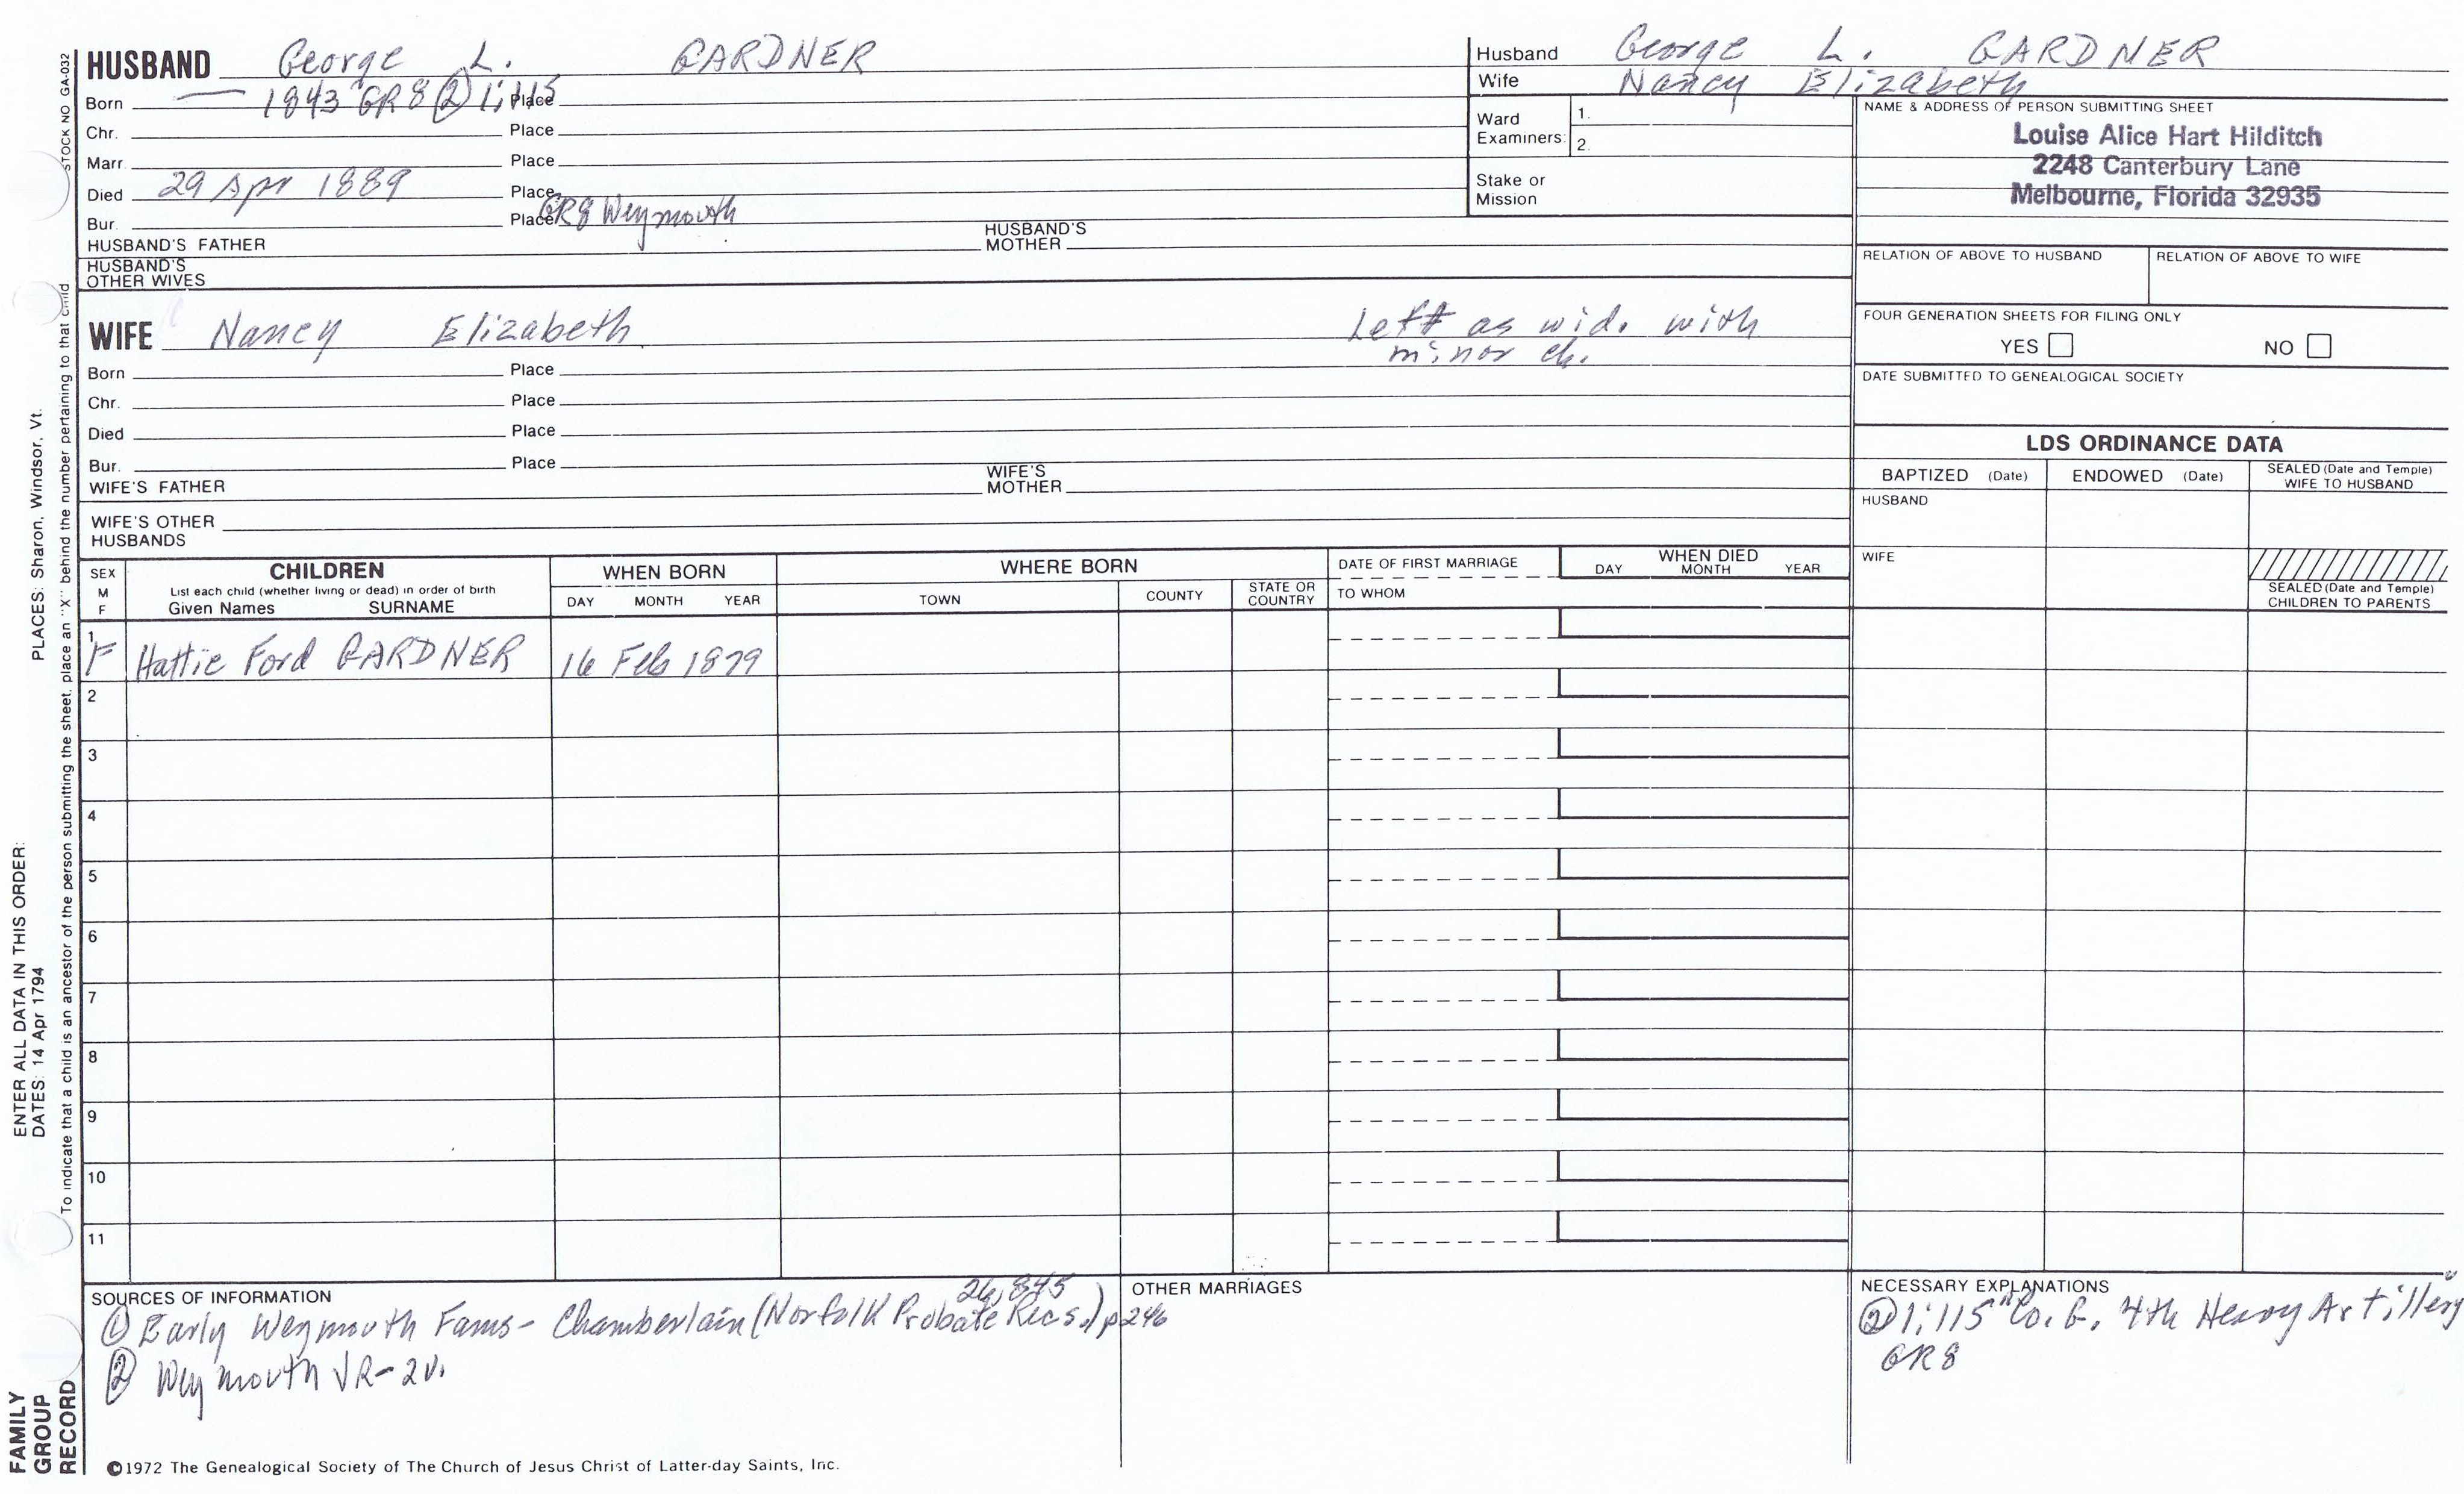 HUSBAND George L. GARDNER
Born 1843 GR 8 (2) 1;115 Place
Chr. Place
Marr Place
Died 29 Apr 1889 Place
Bur. Place GR8 Weymouth
HUSBAND'S FATHER HUSBAND'S MOTHER
HUSBAND'S OTHER WIVES
WIFE Nancy Elizabeth Left as wid. with
minor ch.
Born Place
Chr. Place
Died Place
Bur. Place
WIFE'S FATHER WIFE'S MOTHER
WIFE'S OTHER HUSBANDS
Husband George L. GARDNER
Wife Nancy Elizabeth
Ward Examiners: 1.
2.
Stake or Mission
NAME & ADDRESS OF PERSON SUBMITTING SHEET
Louise Alice Hart Hilditch
2248 Canterbury Lane
Melbourne, Florida 32935
RELATION OF ABOVE TO HUSBAND RELATION OF ABOVE TO WIFE
FOUR GENERATION SHEETS FOR FILING ONLY
YES NO
DATE SUBMITTED TO GENEALOGICAL SOCIETY
LDS ORDINANCE DATA
BAPTIZED (Date) ENDOWED (Date) SEALED (Date and Temple) WIFE TO HUSBAND
HUSBAND
WIFE
SEALED (Date and Temple) CHILDREN TO PARENTS
SEX M F
CHILDREN
List each child (whether living or dead) in order of birth
Given Names SURNAME
WHEN BORN
DAY MONTH YEAR
WHERE BORN
TOWN COUNTY STATE OR COUNTRY
DATE OF FIRST MARRIAGE
TO WHOM
WHEN DIED
DAY MONTH YEAR
1
F Hattie Ford GARDNER 16 Feb 1879
2
3
4
5
6
7
8
9
10
11
SOURCES OF INFORMATION
26,845
(1) Early Weymouth Fams - Chamberlain (Norfolk Probate Recs.) p246
(2) Weymouth VR-2v.
OTHER MARRIAGES
NECESSARY EXPLANATIONS
(2) 1;115 "Co. G, 4th Heavy Artillery"
GR8
©1972 The Genealogical Society of The Church of Jesus Christ of Latter-day Saints, Inc.
FAMILY
GROUP
RECORD
ENTER ALL DATA IN THIS ORDER:
DATES: 14 Apr 1794 PLACES: Sharon, Windsor, Vt.
To indicate that a child is an ancestor of the person submitting the sheet, place an "X" behind the number pertaining to that child
STOCK NO GA-032